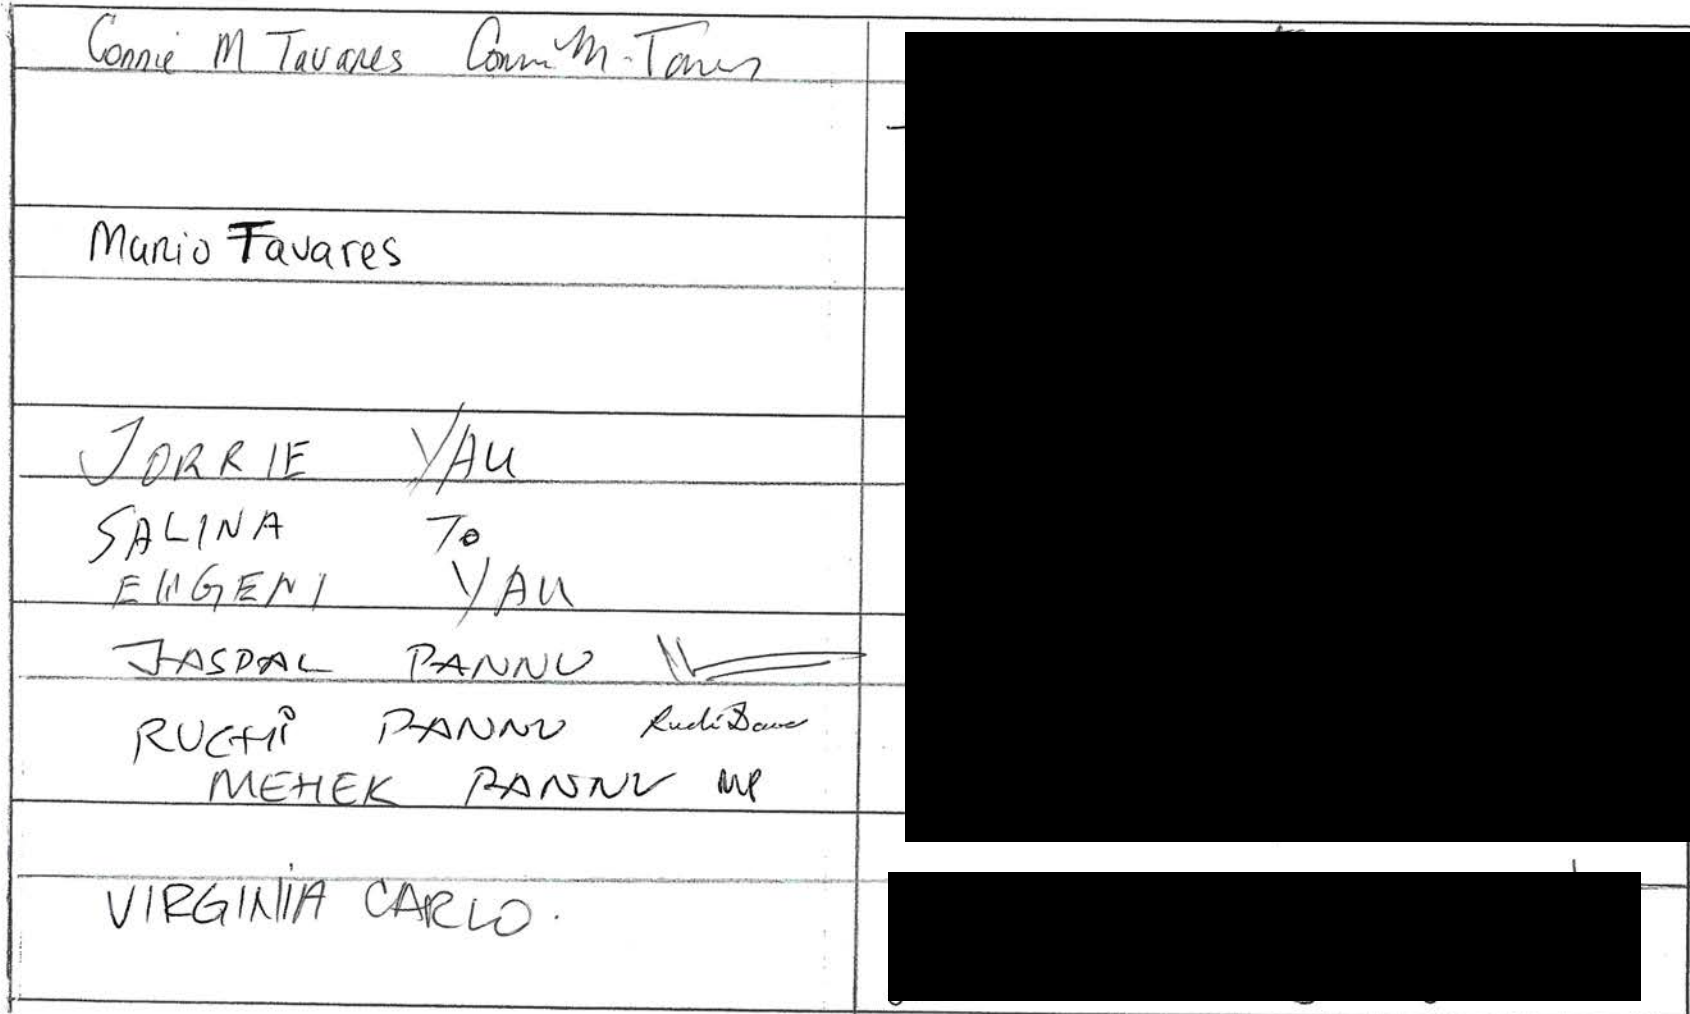 Connie M Tavares Connie M. Tavares
Mario Tavares
JORRIE YAU
SALINA To
EUGENI YAU
JASPAL PANNU
RUCHi PANNU
MEHEK PANNU MP
VIRGINIA CARLO.